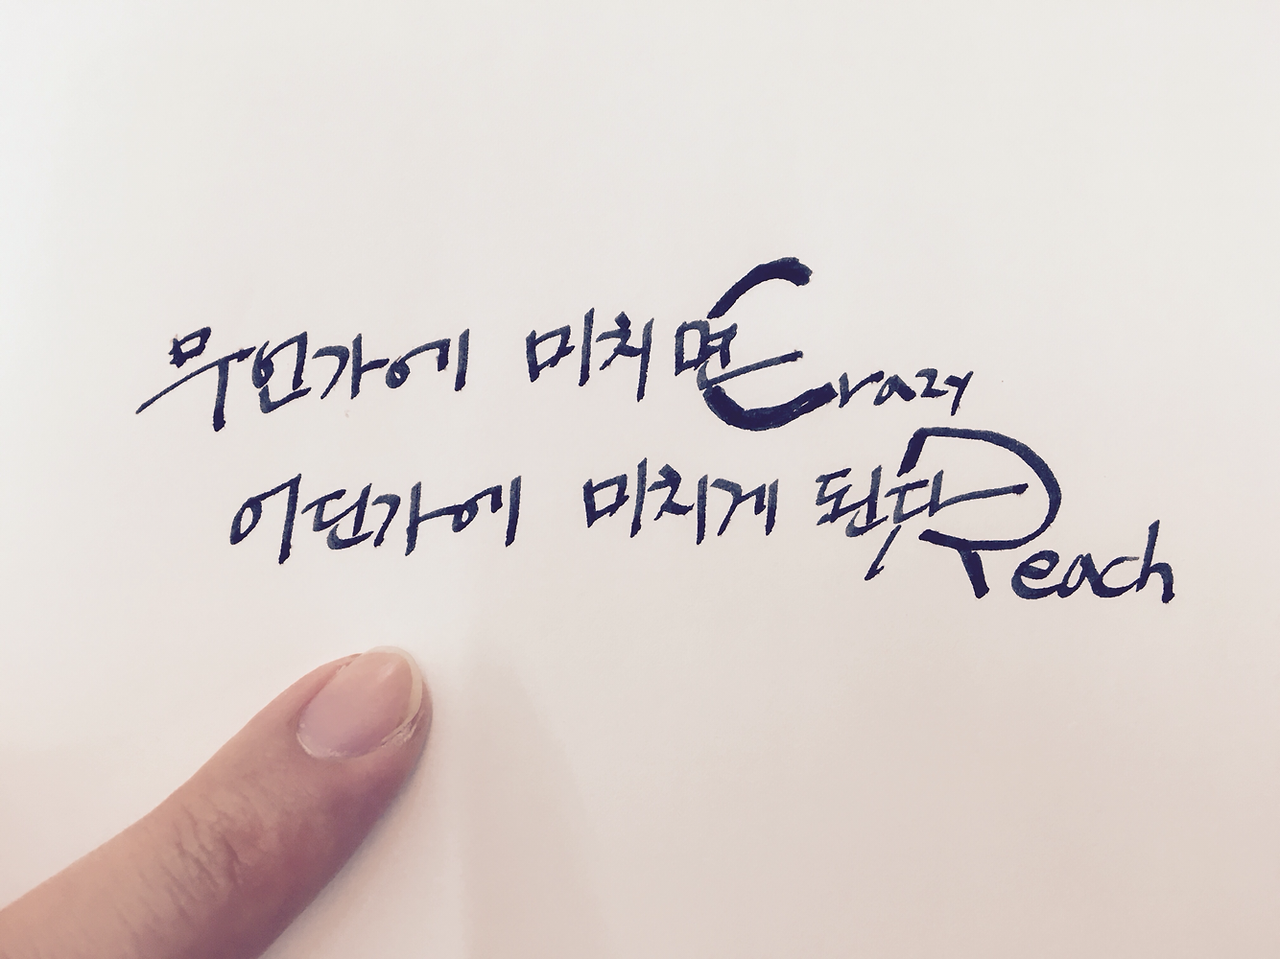 무언가에 미치면 Crazy
어딘가에 미치게 된다 Reach